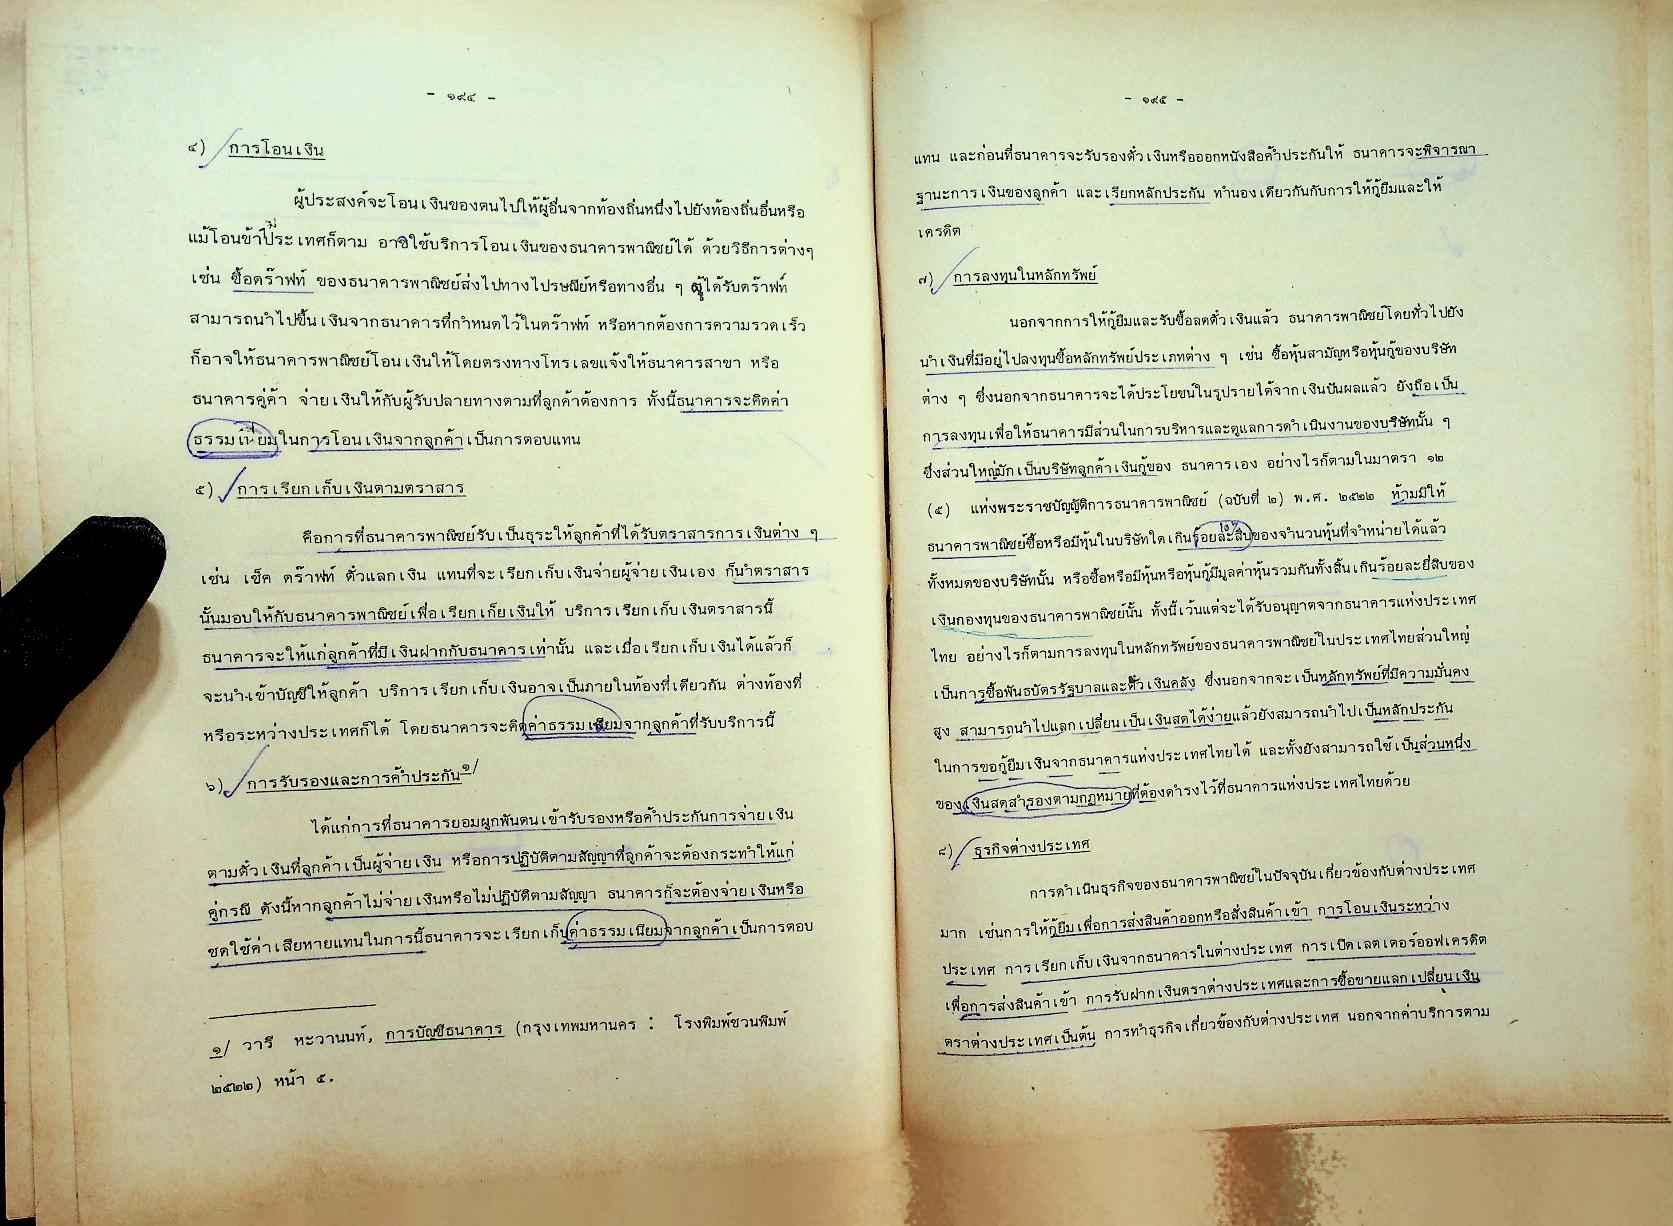 - ๑๙๔ -
๔) การโอนเงิน
ผู้ประสงค์จะโอนเงินของตนไปให้ผู้อื่นจากท้องถิ่นหนึ่งไปยังท้องถิ่นอื่นหรือ
แม้โอนข้ามประเทศก็ตาม อาจใช้บริการโอนเงินของธนาคารพาณิชย์ได้ ด้วยวิธีการต่างๆ
เช่น ซื้อดร๊าฟท์ ของธนาคารพาณิชย์ส่งไปทางไปรษณีย์หรือทางอื่น ๆ ผู้ได้รับดร๊าฟท์
สามารถนำไปขึ้นเงินจากธนาคารที่กำหนดไว้ในดร๊าฟท์ หรือหากต้องการความรวดเร็ว
ก็อาจให้ธนาคารพาณิชย์โอนเงินให้โดยตรงทางโทรเลขแจ้งให้ธนาคารสาขา หรือ
ธนาคารคู่ค้า จ่ายเงินให้กับผู้รับปลายทางตามที่ลูกค้าต้องการ ทั้งนี้ธนาคารจะคิดค่า
ธรรมเนียมในการโอนเงินจากลูกค้าเป็นการตอบแทน
๕) การเรียกเก็บเงินตามตราสาร
คือการที่ธนาคารพาณิชย์รับเป็นธุระให้ลูกค้าที่ได้รับตราสารการเงินต่าง ๆ
เช่น เช็ค ดร๊าฟท์ ตั๋วแลกเงิน แทนที่จะเรียกเก็บเงินจ่ายผู้จ่ายเงินเอง ก็นำตราสาร
นั้นมอบให้กับธนาคารพาณิชย์เพื่อเรียกเก็ยเงินให้ บริการเรียกเก็บเงินตราสารนี้
ธนาคารจะให้แก่ลูกค้าที่มีเงินฝากกับธนาคารเท่านั้น และเมื่อเรียกเก็บเงินได้แล้วก็
จะนำเข้าบัญชีให้ลูกค้า บริการเรียกเก็บเงินอาจเป็นภายในท้องที่เดียวกัน ต่างท้องที่
หรือระหว่างประเทศก็ได้ โดยธนาคารจะคิดค่าธรรมเนียมจากลูกค้าที่รับบริการนี้
๖) การรับรองและการค้ำประกัน๑/
ได้แก่การที่ธนาคารยอมผูกพันตนเข้ารับรองหรือค้ำประกันการจ่ายเงิน
ตามตั๋วเงินที่ลูกค้าเป็นผู้จ่ายเงิน หรือการปฏิบัติตามสัญญาที่ลูกค้าจะต้องกระทำให้แก่
คู่กรณี ดังนี้หากลูกค้าไม่จ่ายเงินหรือไม่ปฏิบัติตามสัญญา ธนาคารก็จะต้องจ่ายเงินหรือ
ชดใช้ค่าเสียหายแทนในการนี้ธนาคารจะเรียกเก็บค่าธรรมเนียมจากลูกค้าเป็นการตอบ
๑/ วารี หะวานนท์, การบัญชีธนาคาร (กรุงเทพมหานคร : โรงพิมพ์ชวนพิมพ์
๒๕๒๒) หน้า ๕.
- ๑๙๕ -
แทน และก่อนที่ธนาคารจะรับรองตั๋วเงินหรือออกหนังสือค้ำประกันให้ ธนาคารจะพิจารณา
ฐานะการเงินของลูกค้า และเรียกหลักประกัน ทำนองเดียวกันกับการให้กู้ยืมและให้
เครดิต
๗) การลงทุนในหลักทรัพย์
นอกจากการให้กู้ยืมและรับซื้อลดตั๋วเงินแล้ว ธนาคารพาณิชย์โดยทั่วไปยัง
นำเงินที่มีอยู่ไปลงทุนซื้อหลักทรัพย์ประเภทต่าง ๆ เช่น ซื้อหุ้นสามัญหรือหุ้นกู้ของบริษัท
ต่าง ๆ ซึ่งนอกจากธนาคารจะได้ประโยชน์ในรูปรายได้จากเงินปันผลแล้ว ยังถือเป็น
การลงทุนเพื่อให้ธนาคารมีส่วนในการบริหารและดูแลการดำเนินงานของบริษัทนั้น ๆ
ซึ่งส่วนใหญ่มักเป็นบริษัทลูกค้าเงินกู้ของ ธนาคารเอง อย่างไรก็ตามในมาตรา ๑๒
(๕) แห่งพระราชบัญญัติการธนาคารพาณิชย์ (ฉบับที่ ๒) พ.ศ. ๒๕๒๒ ห้ามมิให้
ธนาคารพาณิชย์ซื้อหรือมีหุ้นในบริษัทใดเกินร้อยละสิบของจำนวนหุ้นที่จำหน่ายได้แล้ว
ทั้งหมดของบริษัทนั้น หรือซื้อหรือมีหุ้นหรือหุ้นกู้มีมูลค่าหุ้นรวมกันทั้งสิ้นเกินร้อยละยี่สิบของ
เงินกองทุนของธนาคารพาณิชย์นั้น ทั้งนี้เว้นแต่จะได้รับอนุญาตจากธนาคารแห่งประเทศ
ไทย อย่างไรก็ตามการลงทุนในหลักทรัพย์ของธนาคารพาณิชย์ในประเทศไทยส่วนใหญ่
เป็นการซื้อพันธบัตรรัฐบาลและตั๋วเงินคลัง ซึ่งนอกจากจะเป็นหลักทรัพย์ที่มีความมั่นคง
สูง สามารถนำไปแลกเปลี่ยนเป็นเงินสดได้ง่ายแล้วยังสมารถนำไปเป็นหลักประกัน
ในการขอกู้ยืมเงินจากธนาคารแห่งประเทศไทยได้ และทั้งยังสามารถใช้เป็นส่วนหนึ่ง
ของเงินสดสำรองตามกฎหมายที่ต้องดำรงไว้ที่ธนาคารแห่งประเทศไทยด้วย
๘) ธุรกิจต่างประเทศ
การดำเนินธุรกิจของธนาคารพาณิชย์ในปัจจุบันเกี่ยวข้องกับต่างประเทศ
มาก เช่นการให้กู้ยืมเพื่อการส่งสินค้าออกหรือสั่งสินค้าเข้า การโอนเงินระหว่าง
ประเทศ การเรียกเก็บเงินจากธนาคารในต่างประเทศ การเปิดเลตเตอร์ออฟเครดิต
เพื่อการส่งสินค้าเข้า การรับฝากเงินตราต่างประเทศและการซื้อขายแลกเปลี่ยนเงิน
ตราต่างประเทศเป็นต้น การทำธุรกิจเกี่ยวข้องกับต่างประเทศ นอกจากค่าบริการตาม